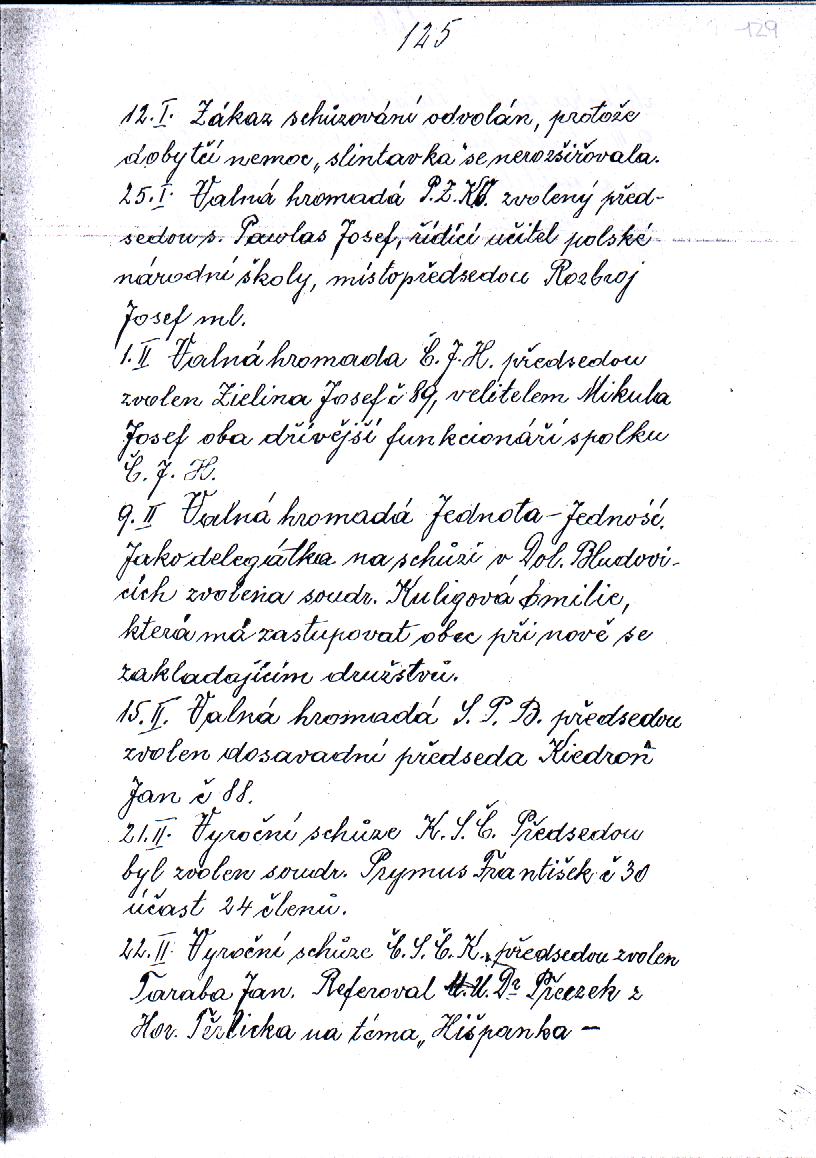 125
129
12.I. Zákaz schůzování odvolán, protože
dobytčí nemoc „slintavka" se nerozšiřovala.
25.I. Valná hromadá P.Z.K.O. zvolený před-
sedou s. Pawlas Josef, řídící učitel polské
národní školy, místopředsedou Rozbroj
Josef ml.
1.II Valná hromada Č.J.H. předsedou
zvolen Zielina Josef č 89, velitelem Mikula
Josef oba dřívější funkcionáří spolku
Č.J.H.
9.II Valná hromadá Jednota - Jedność.
Jako delegátka na schůzi v Dol. Bludovi-
cích zvolena soudr. Kuligová Emilie,
která má zastupovat obec při nově se
zakladajícím družstvů.
15.II. Valná hromadá S.P.B. předsedou
zvolen dosavadní předseda Kiedroň
Jan č 88.
21.II. Vyroční schůze K.S.Č. Předsedou
byl zvolen soudr. Prymus František č 30
účast 24 členů.
22.II. Vyroční schůze Č.S.Č.K., předsedou zvolen
Taraba Jan. Referoval Dr z
Hor. Těrlicka na téma „Hišpanka -